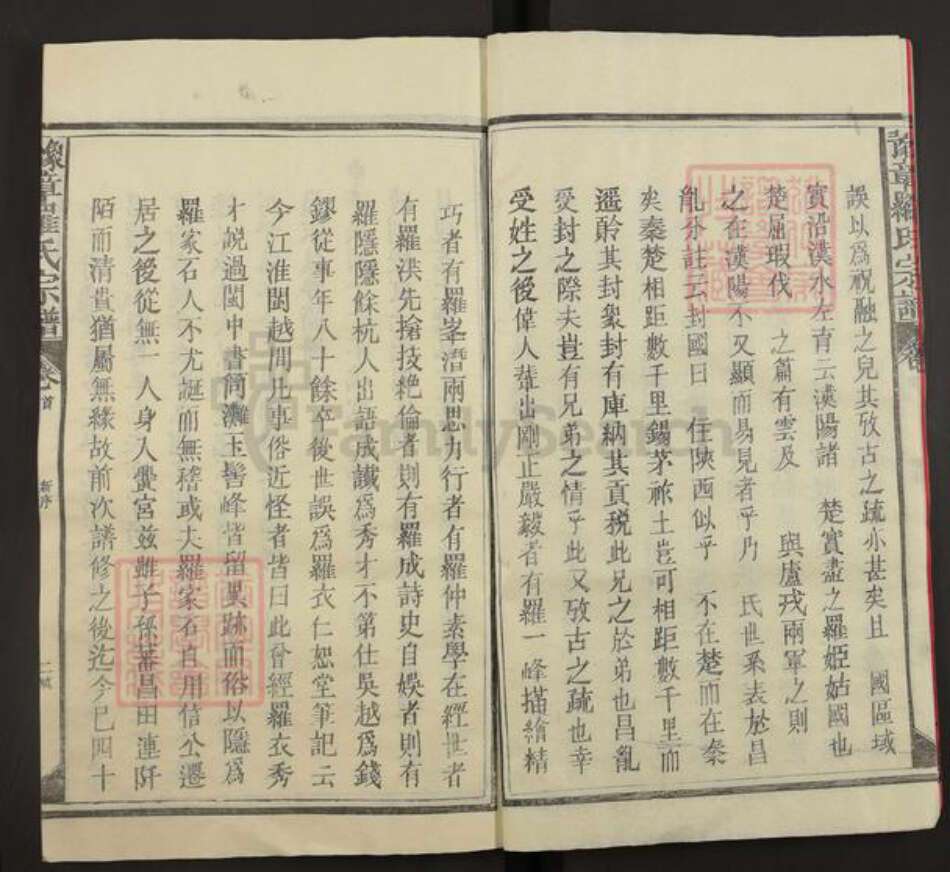 誤以為祝融之兒其攷古之疏亦甚矣且 國區域
實沿漢水左育云漢陽諸 楚實盡之羅姬姑國也
楚屈瑕伐 之篇有雲及 與盧戎兩軍之則
之在漢陽不又顯而易見者乎乃 氏世系表於昌
亂分註云封國曰 住陝西似乎 不在楚而在秦
矣秦楚相距數千里錫茅祚土豈可相距數千里而
遥聆其封象封有庳納其貢税此兄之於弟也昌亂
受封之際夫豈有兄弟之情乎此又攷古之疏也幸
受姓之後偉人輩出剛正嚴毅者有羅一峰描繪精
巧者有羅峯潛雨思力行者有羅仲素學在經世者
有羅洪先搶技絶倫者則有羅成詩史自娱者則有
羅隱隱餘杭人出語成讖為秀才不第仕吳越為錢
鏐從事年八十餘卒後世誤為羅衣仁恕堂筆記云
今江淮閩越間凡事俗近怪者皆曰此曾經羅衣秀
才説過閩中書筒灘玉髻峰皆留異跡而俗以隱為
羅家石人不尤誕而無稽或夫羅家石自用信公遷
居之後從無一人身入黌宮兹雖子孫蕃昌田連阡
陌而清貴猶屬無緣故前次譜修之後迄今已四十
豫章羅氏宗譜
卷首
新序